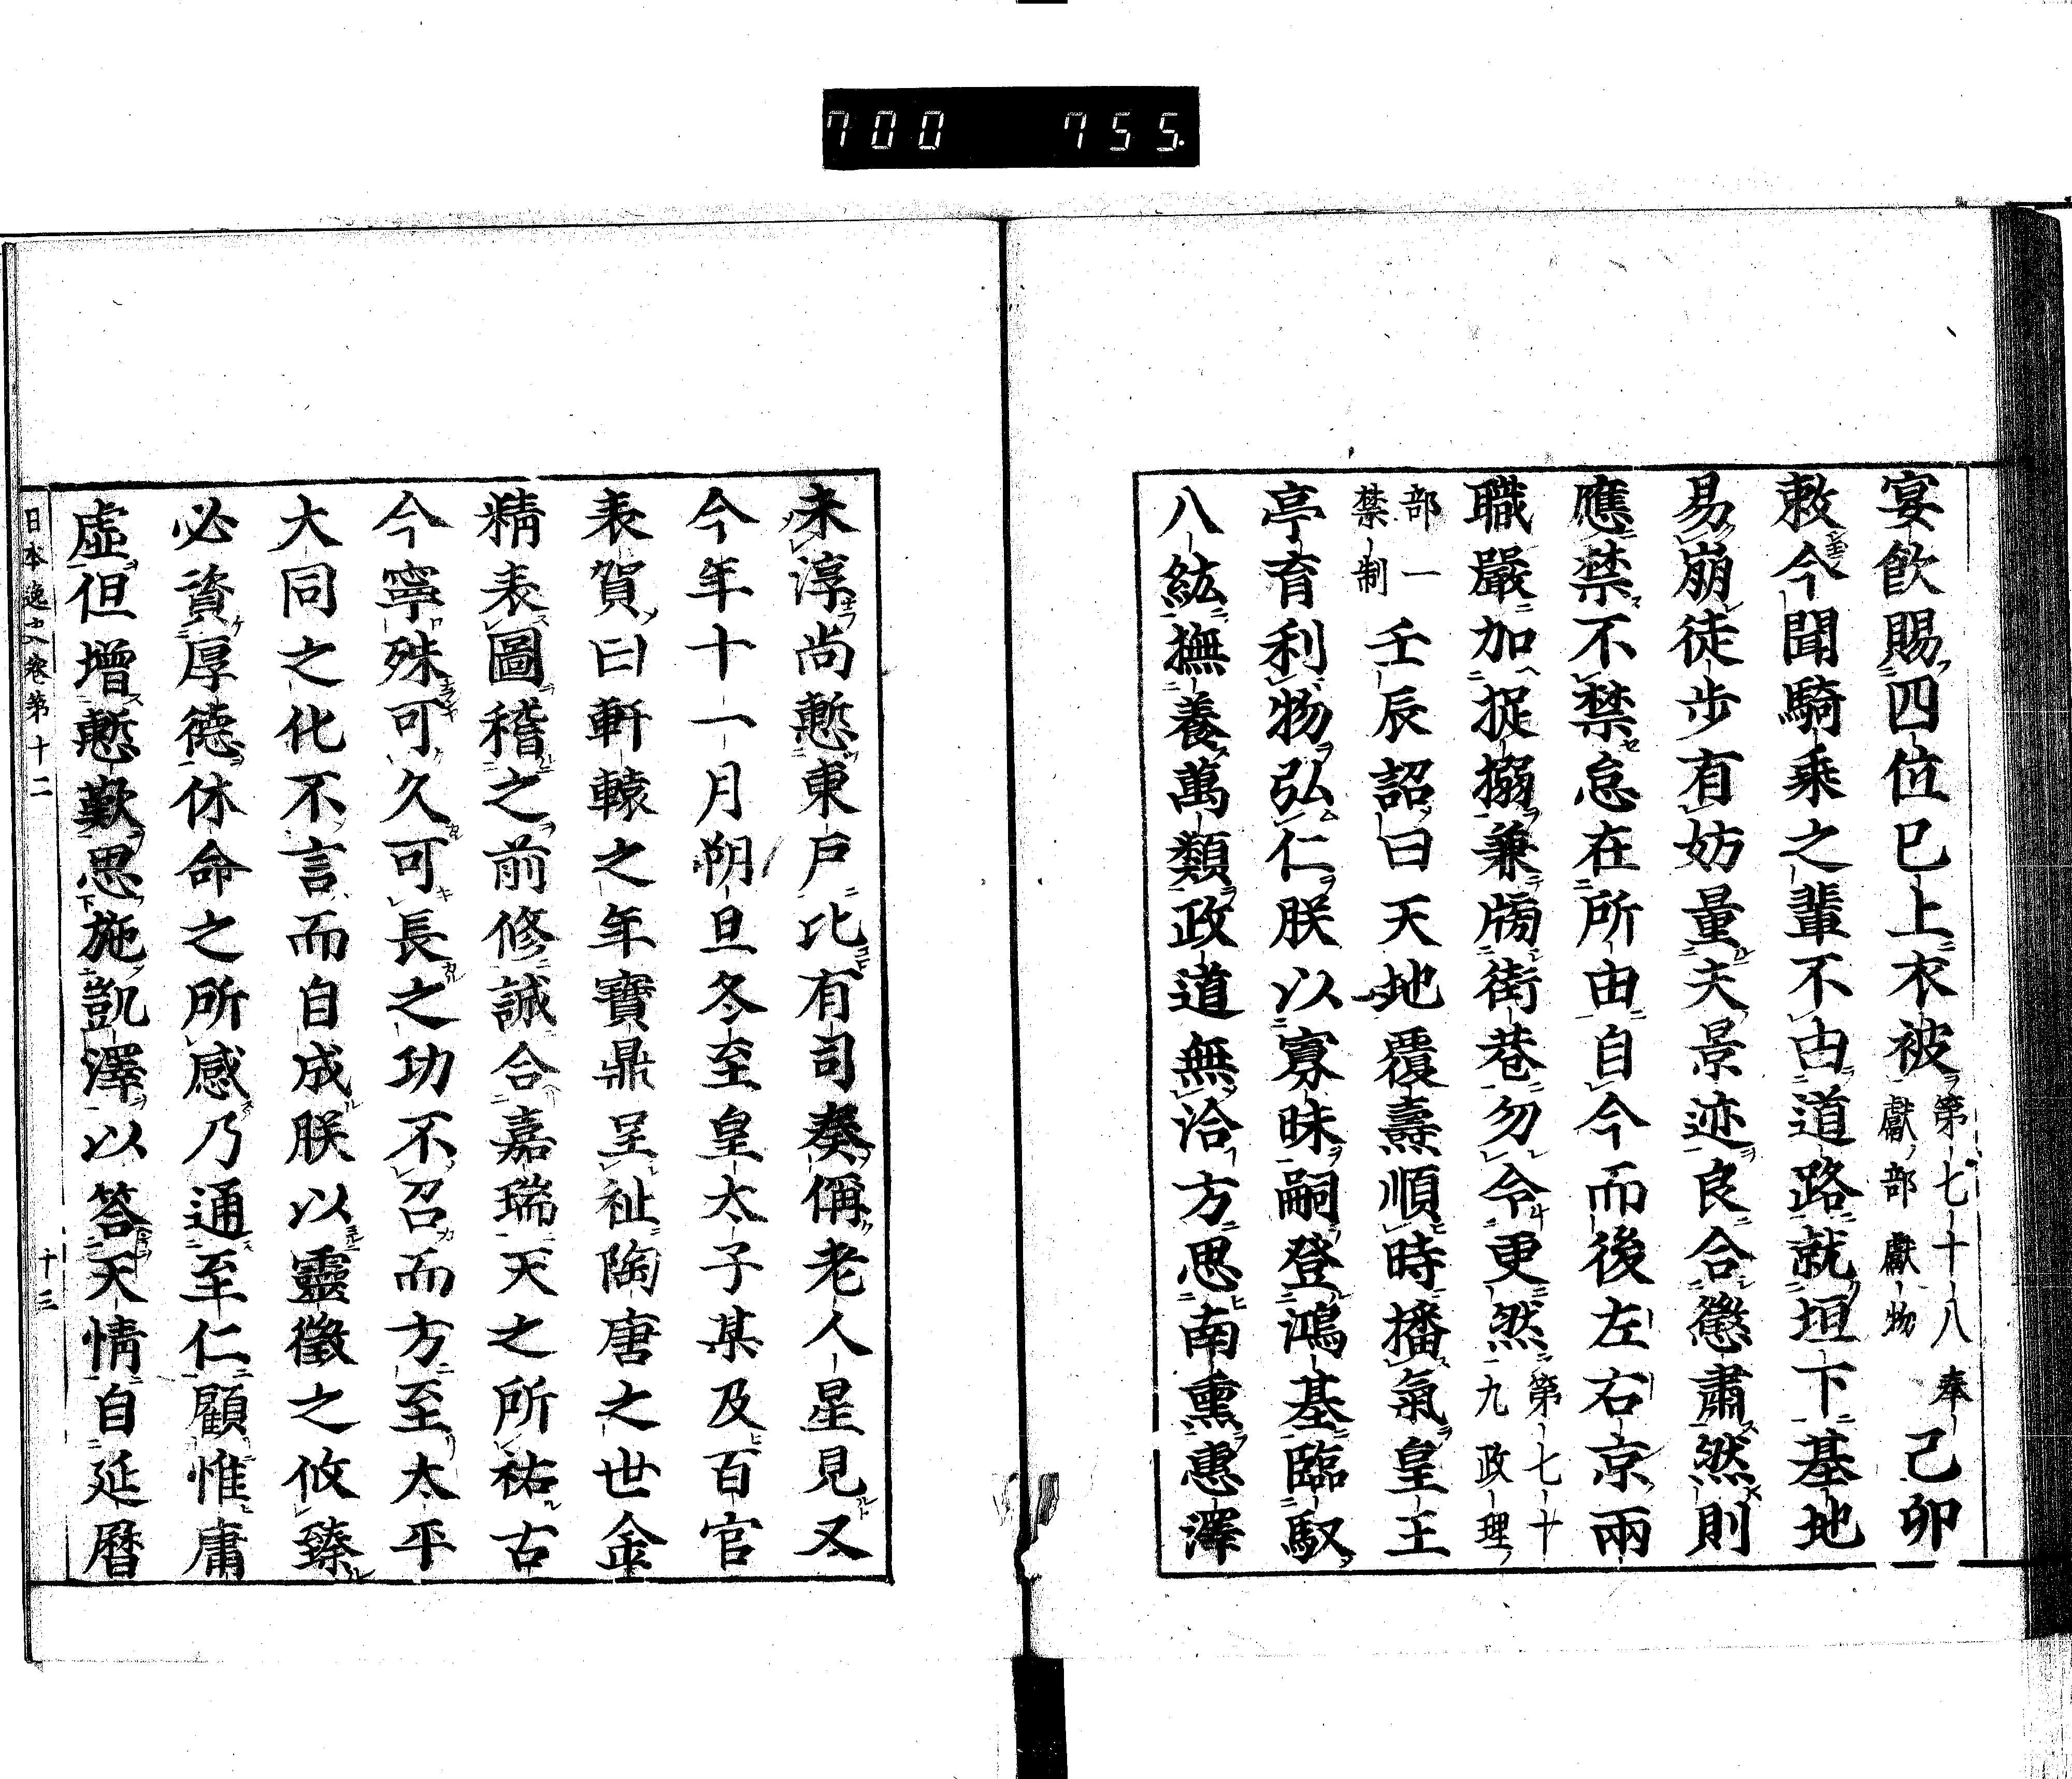 700 755.
宴飲賜四位已上衣被第七十八奉獻部獻物己卯
敕今聞騎乗之輩不由道路就垣下基地
易崩徒歩有妨量夫景迹良合懲肅然則
應禁不禁怠在所由自今而後左右京兩
職嚴加捉搦兼牓街巷勿令更然第七十九政理
部一禁制壬辰詔曰天地覆燾順時播氣皇王
亭育利物弘仁朕以寡昧嗣登鴻基臨馭
八紘撫養萬類政道無洽方思南熏惠澤
未淳尚慙東戸比有司奏偁老人星見又
今年十一月朔旦冬至皇太子某及百官
表賀曰軒轅之年寶鼎呈祉陶唐之世金
精表圖稽之前修誠合嘉瑞天之所祐古
今寧殊可久可長之功不召而方至太平
大同之化不言而自成朕以靈徵之攸臻
必資厚德休命之所感乃通至仁顧惟庸
虛但增慙歎思施凱澤以答天情自延暦
日本逸史卷第十二 十三